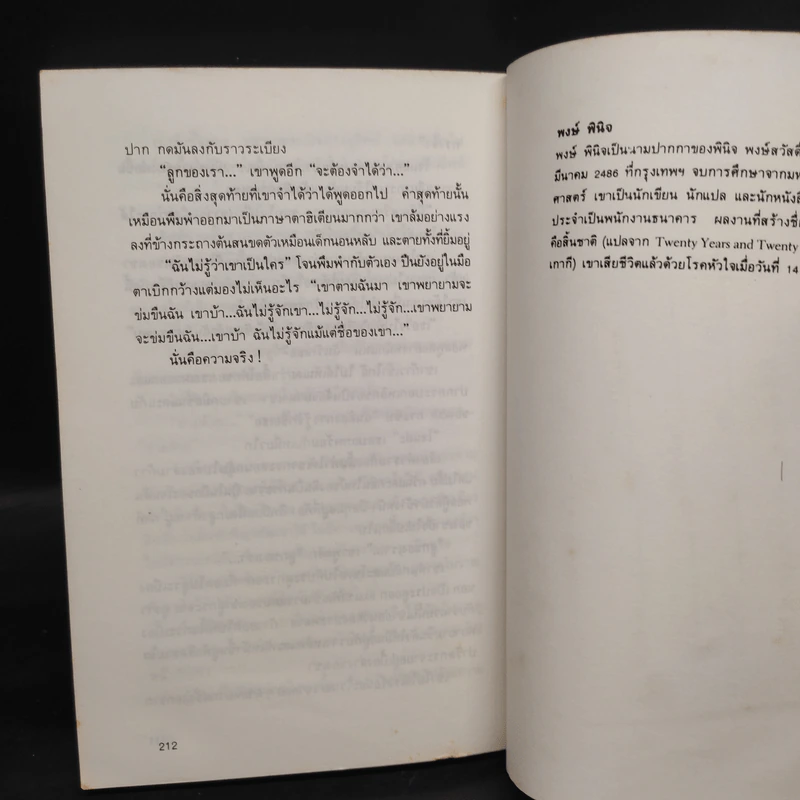 ปาก กดมันลงกับราวระเบียง
“ลูกของเรา...” เขาพูดอีก “จะต้องจำได้ว่า...”
นั่นคือสิ่งสุดท้ายที่เขาจำได้ว่าได้พูดออกไป คำสุดท้ายนั้น
เหมือนพึมพำออกมาเป็นภาษาตาฮิเตียนมากกว่า เขาล้มอย่างแรง
ลงที่ข้างกระถางต้นสนขดตัวเหมือนเด็กนอนหลับ และตายทั้งที่ยิ้มอยู่
“ฉันไม่รู้ว่าเขาเป็นใคร” โจนพึมพำกับตัวเอง ปืนยังอยู่ในมือ
ตาเบิกกว้างแต่มองไม่เห็นอะไร “เขาตามฉันมา เขาพยายามจะ
ข่มขืนฉัน เขาบ้า...ฉันไม่รู้จักเขา...ไม่รู้จัก...ไม่รู้จัก...เขาพยายาม
จะข่มขืนฉัน...เขาบ้า ฉันไม่รู้จักแม้แต่ชื่อของเขา...”
นั่นคือความจริง!
212
พงษ์ พินิจ
พงษ์ พินิจเป็นนามปากกาของพินิจ พงษ์สวัสดิ์
มีนาคม 2486 ที่กรุงเทพฯ จบการศึกษาจากมห
ศาสตร์ เขาเป็นนักเขียน นักแปล และนักหนังสื
ประจำเป็นพนักงานธนาคาร ผลงานที่สร้างชื่อ
คือสิ้นชาติ (แปลจาก Twenty Years and Twenty
เกากี) เขาเสียชีวิตแล้วด้วยโรคหัวใจเมื่อวันที่ 14